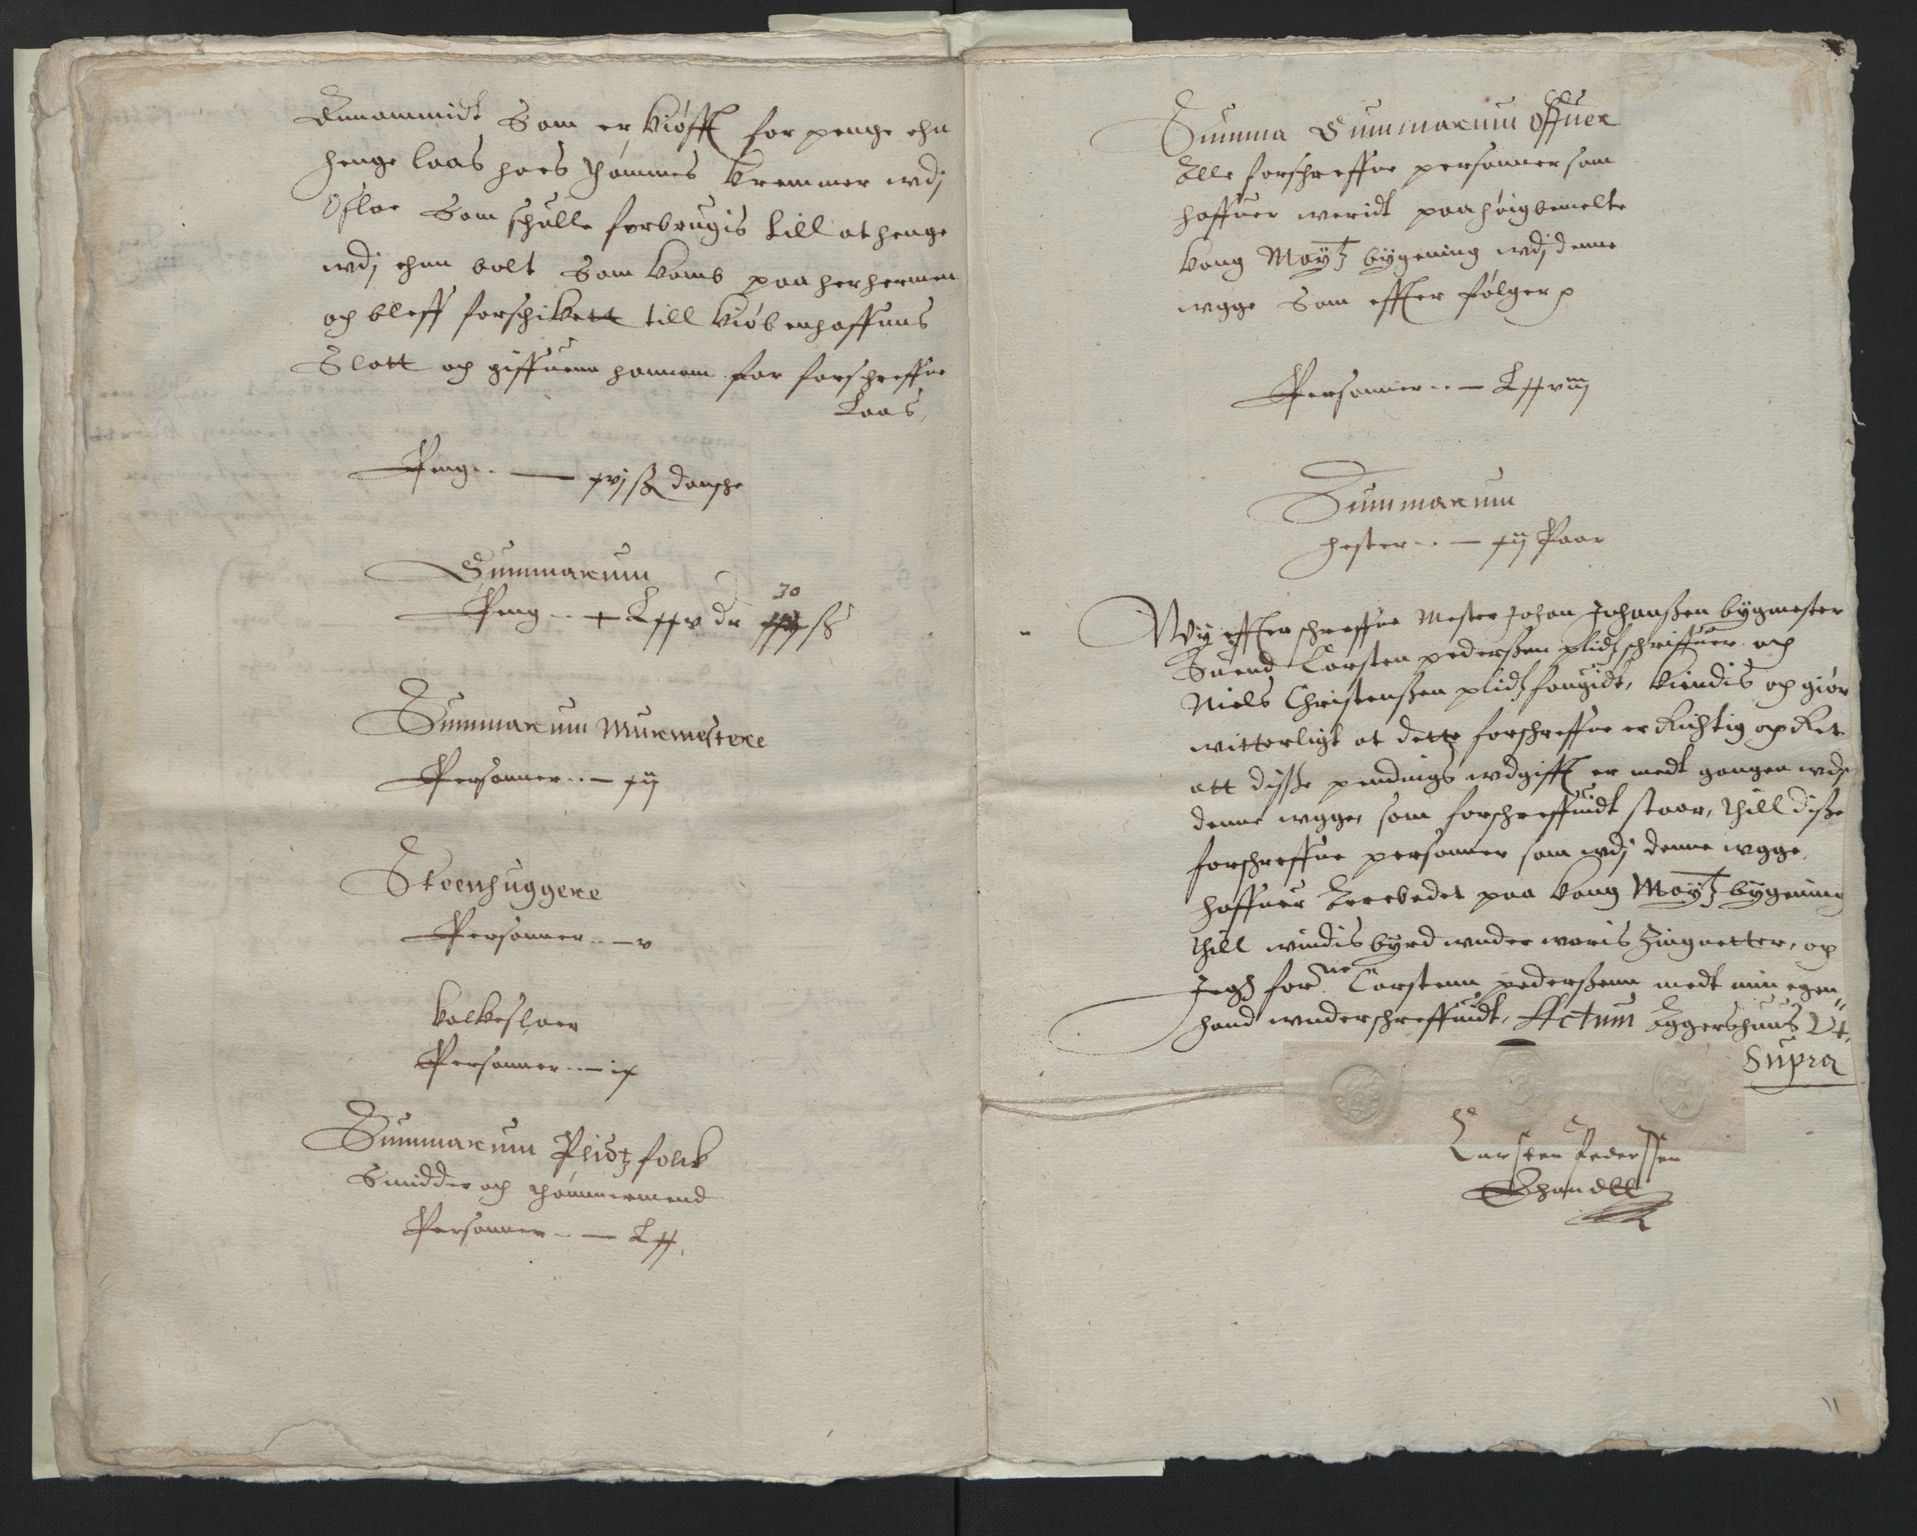 Ennommidt Som er kiøfft for penge ehn
henge laas hoes thommes kremmer wdj
Osloe Som schulle forbrugis till at henge
wdj ehnn bolt Som komb paa her hermen
och bleff forschikett till kiøbenhaffuns
Slott och giffuenn hannom for forschreffne
Laas,
Peng.. — xvj ß dansche
Summarum
Peng .. — Lxxv dr 30 ß
Summarum Murmestere
Personner .. — xij
Steenhuggere
Personner .. — v
kalkeslaer
Personner .. — ix
Summarum Plidtz folck
Smidder och thømmermend
Personner .. — Lxx,
Summa Summarum offuer
Alle forschreffne personner som
haffuer weridt paa høigbemelte
kong Maytz bygening wdj denne
wgge Som effter følger
Personner .. — Lxxviij
Summarum
hester .. — xij Paar
Wy effterschreffne Mester Johan Johanßen bygmester
Suend Carsten pederßen plidtzschriffuer och
Niels Christenßen plidtzfougidt, kiendis och giør
witterligt at dette forschreffne er Richtig och Ret
att diße pendings wdgifft er medt gangen wdj
denne wgge, som forschreffuidt staar, thill diße
forschreffne personner som wdj denne wgge
haffuer Arebedet paa kong Maytz bygening
thill windisbyrd wnder woris Zingnetter, och
Jegh forne Carstenn pederßenn medt min egen
hand wnderschreffuidt, Actum Aggershuus Ut
Supra
Carsten Pederssen
Ehandtt
11